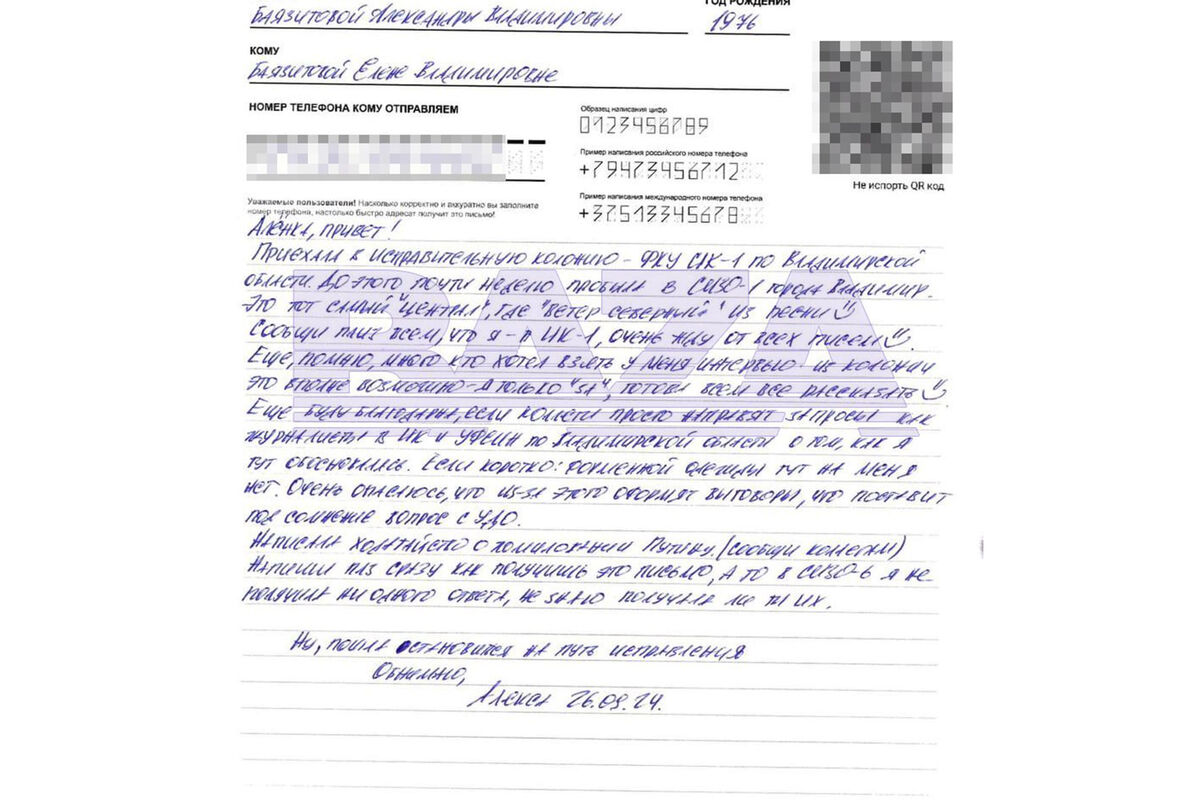 Баязитовой Александры Владимировны
ГОД РОЖДЕНИЯ
1976
КОМУ
Баязитовой Елене Владимировне
НОМЕР ТЕЛЕФОНА КОМУ ОТПРАВЛЯЕМ
Образец написания цифр
0123456789
Пример написания российского номера телефона
+79473456712
Пример написания международного номера телефона
+37513345678
Не испорть QR код
Уважаемые пользователи! Насколько корректно и аккуратно вы заполните
номер телефона, настолько быстро адресат получит это письмо!
BAZA
Алёнка, привет!
Приехала в исправительную колонию - ФКУ ИК-1 по Владимирской
области. До этого почти неделю пробыла в СИЗО-1 города Владимир.
Это тот самый "централ", где "ветер северный" из песни
Сообщи плиз всем, что я - в ИК-1, очень жду от всех писем.
Еще, помню, много кто хотел взять у меня интервью - из колонии
это вполне возможно - я только "за", готова всем все рассказать
Еще буду благодарна, если коллеги просто направят запросы как
журналисты в ИК и УФСИН по Владимирской области о том, как я
тут обосновалась. Если коротко: форменной одежды тут на меня
нет. Очень опасаюсь, что из-за этого оформят выговоры, что поставит
под сомнение вопрос с УДО.
Написала ходатайство о помиловании Путину. (сообщи коллегам)
Напиши плз сразу как получишь это письмо, а то в СИЗО-6 я не
получила ни одного ответа, не знаю получала ли ты их.
Ну, пошла становится на путь исправления
Обнимаю,
Алекса 26.09.24.